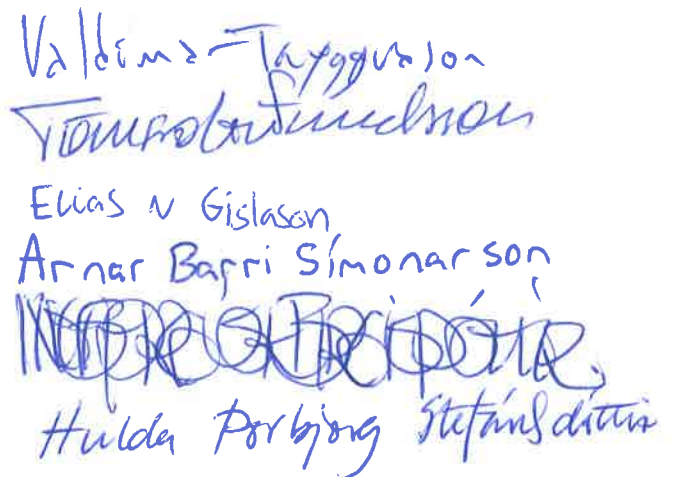 Valdimar Tryggvason
Tómas Guðmundsson
Elias N Gislason
Arnar Bafri Símonarson
Hulda Þorbjörg Stefánsdóttir